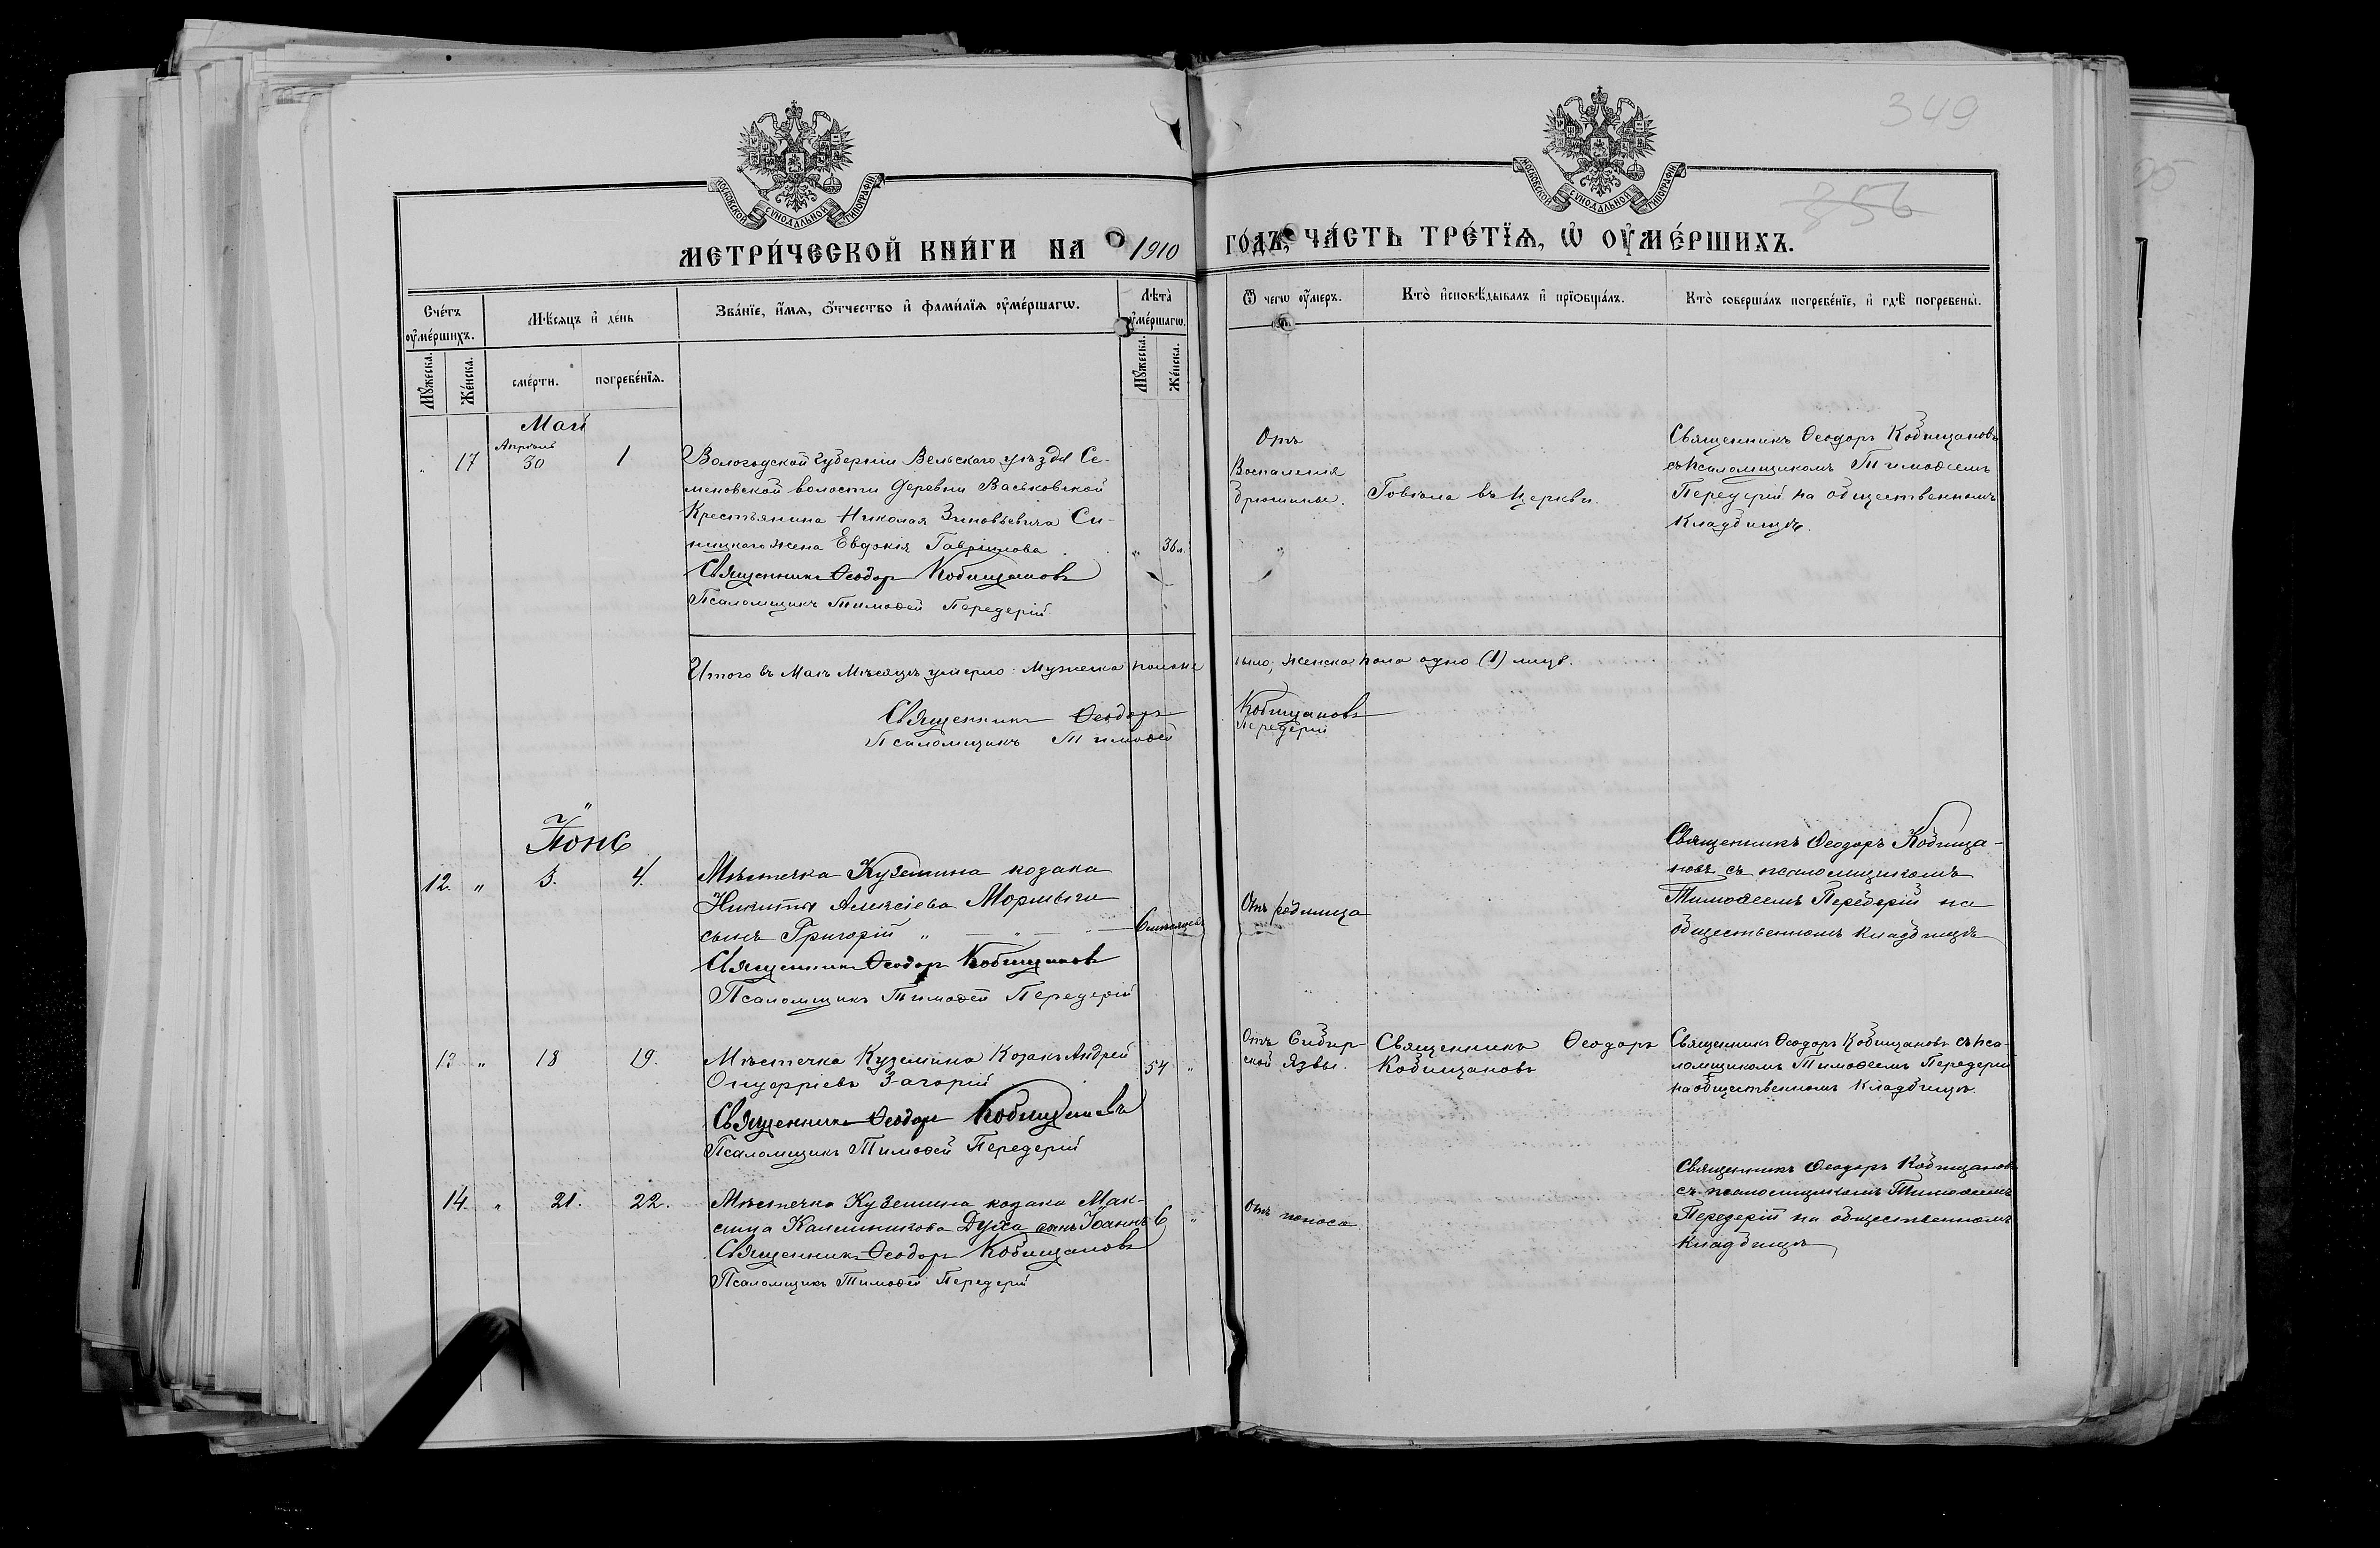 МОСКОВСКОЙ СѴНОДАЛЬНОЙ ТИПОГРАФІИ
МОСКОВСКОЙ СѴНОДАЛЬНОЙ ТИПОГРАФІИ
349
356
МЕТРИ́ЧЕСКОЙ КНИ́ГИ НА 1910 ГО́ДЪ, ЧА́СТЬ ТРЕ́ТЇѦ, Ѡ҆ ОУ҆МЕ́РШИХЪ.
Сче́тъ оу҆ме́ршихъ.
Мѣ́сяцъ и҆ де́нь
Зва́нїе, и҆́мѧ, ѻ҆́тчество и҆ фами́лїѧ оу҆ме́ршагѡ.
Лѣ́та̀ оу҆ме́ршагѡ.
Ѿ чегѡ̀ оу҆́меръ.
Кто̀ и҆сповѣ́дывалъ и҆ прїѡбща́лъ.
Кто̀ соверша́лъ погребе́нїе, и҆ гдѣ̀ погребены̀.
Мꙋ́жеска.
Же́нска.
сме́рти.
погребе́нїѧ.
Мꙋ́жеска.
Же́нска.
Май
Апрѣль
„ 17 30 1
Вологодской губерніи Вельскаго уѣзда Се-
меновской волости деревни Васьковской
Крестьянина Николая Зиновьевича Си-
ницкаго жена Евдокія Гавріилова „ 36 л.
Священникъ Ѳеодоръ Кобищановъ
Псаломщикъ Тимоѳей Передерій
Отъ
Воспаленія
брюшины.
Говѣла въ Церкви.
Священникъ Ѳеодоръ Кобищановъ
съ псаломщикомъ Тимоѳеемъ
Передерій на общественномъ
кладбищѣ.
Итого въ Маѣ мѣсяцѣ умерло: Мужеска пола не было, женска пола одно (1) лицо.
Священникъ Ѳеодоръ Кобищановъ
Псаломщикъ Тимоѳей Передерій
Іюнь
12. „ 3. 4.
Мѣстечка Куземина козака
Никиты Алексіева
сынъ Григорій „ — „ — 6 мѣсяцевъ
Священникъ Ѳеодоръ Кобищановъ
Псаломщикъ Тимоѳей Передерій
Отъ родимца
Священникъ Ѳеодоръ Кобища-
новъ съ псаломщикомъ
Тимоѳеемъ Передерій на
общественномъ кладбищѣ
13 „ 18 19.
Мѣстечка Куземина Козакъ Андрей
Онуфріевъ Загорій 54 „
Священникъ Ѳеодоръ Кобищановъ
Псаломщикъ Тимоѳей Передерій
Отъ Сибир-
ской Язвы.
Священникъ Ѳеодоръ
Кобищановъ
Священникъ Ѳеодоръ Кобищановъ съ пса-
ломщикомъ Тимоѳеемъ Передерій
на общественномъ Кладбищѣ.
14. „ 21. 22.
Мѣстечка Куземина козака Мак-
сима Калинникова Духа сынъ Іоаннъ 6 „
Священникъ Ѳеодоръ Кобищановъ
Псаломщикъ Тимоѳей Передерій
Отъ поноса.
Священникъ Ѳеодоръ Кобищановъ
съ псаломщикомъ Тимоѳеемъ
Передерій на общественномъ
кладбищѣ